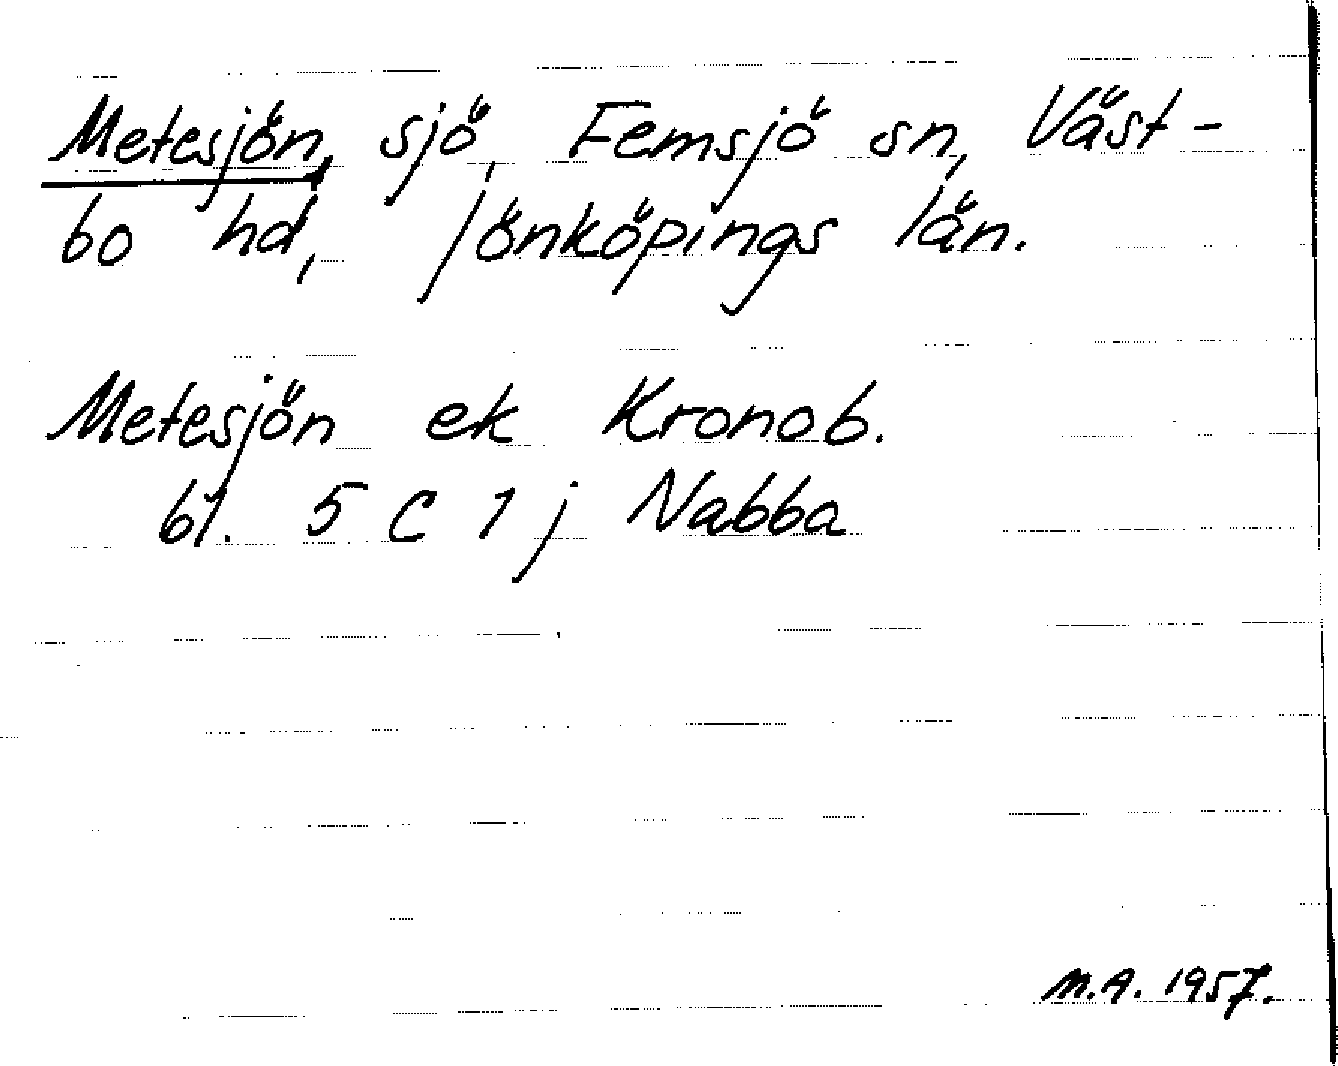 Metesjön, sjö, Femsjö sn, Väst-
bo hd, Jönköpings län.
Metesjön ek Kronob.
bl. 5 C 1 j Nabba
M.A. 1957.